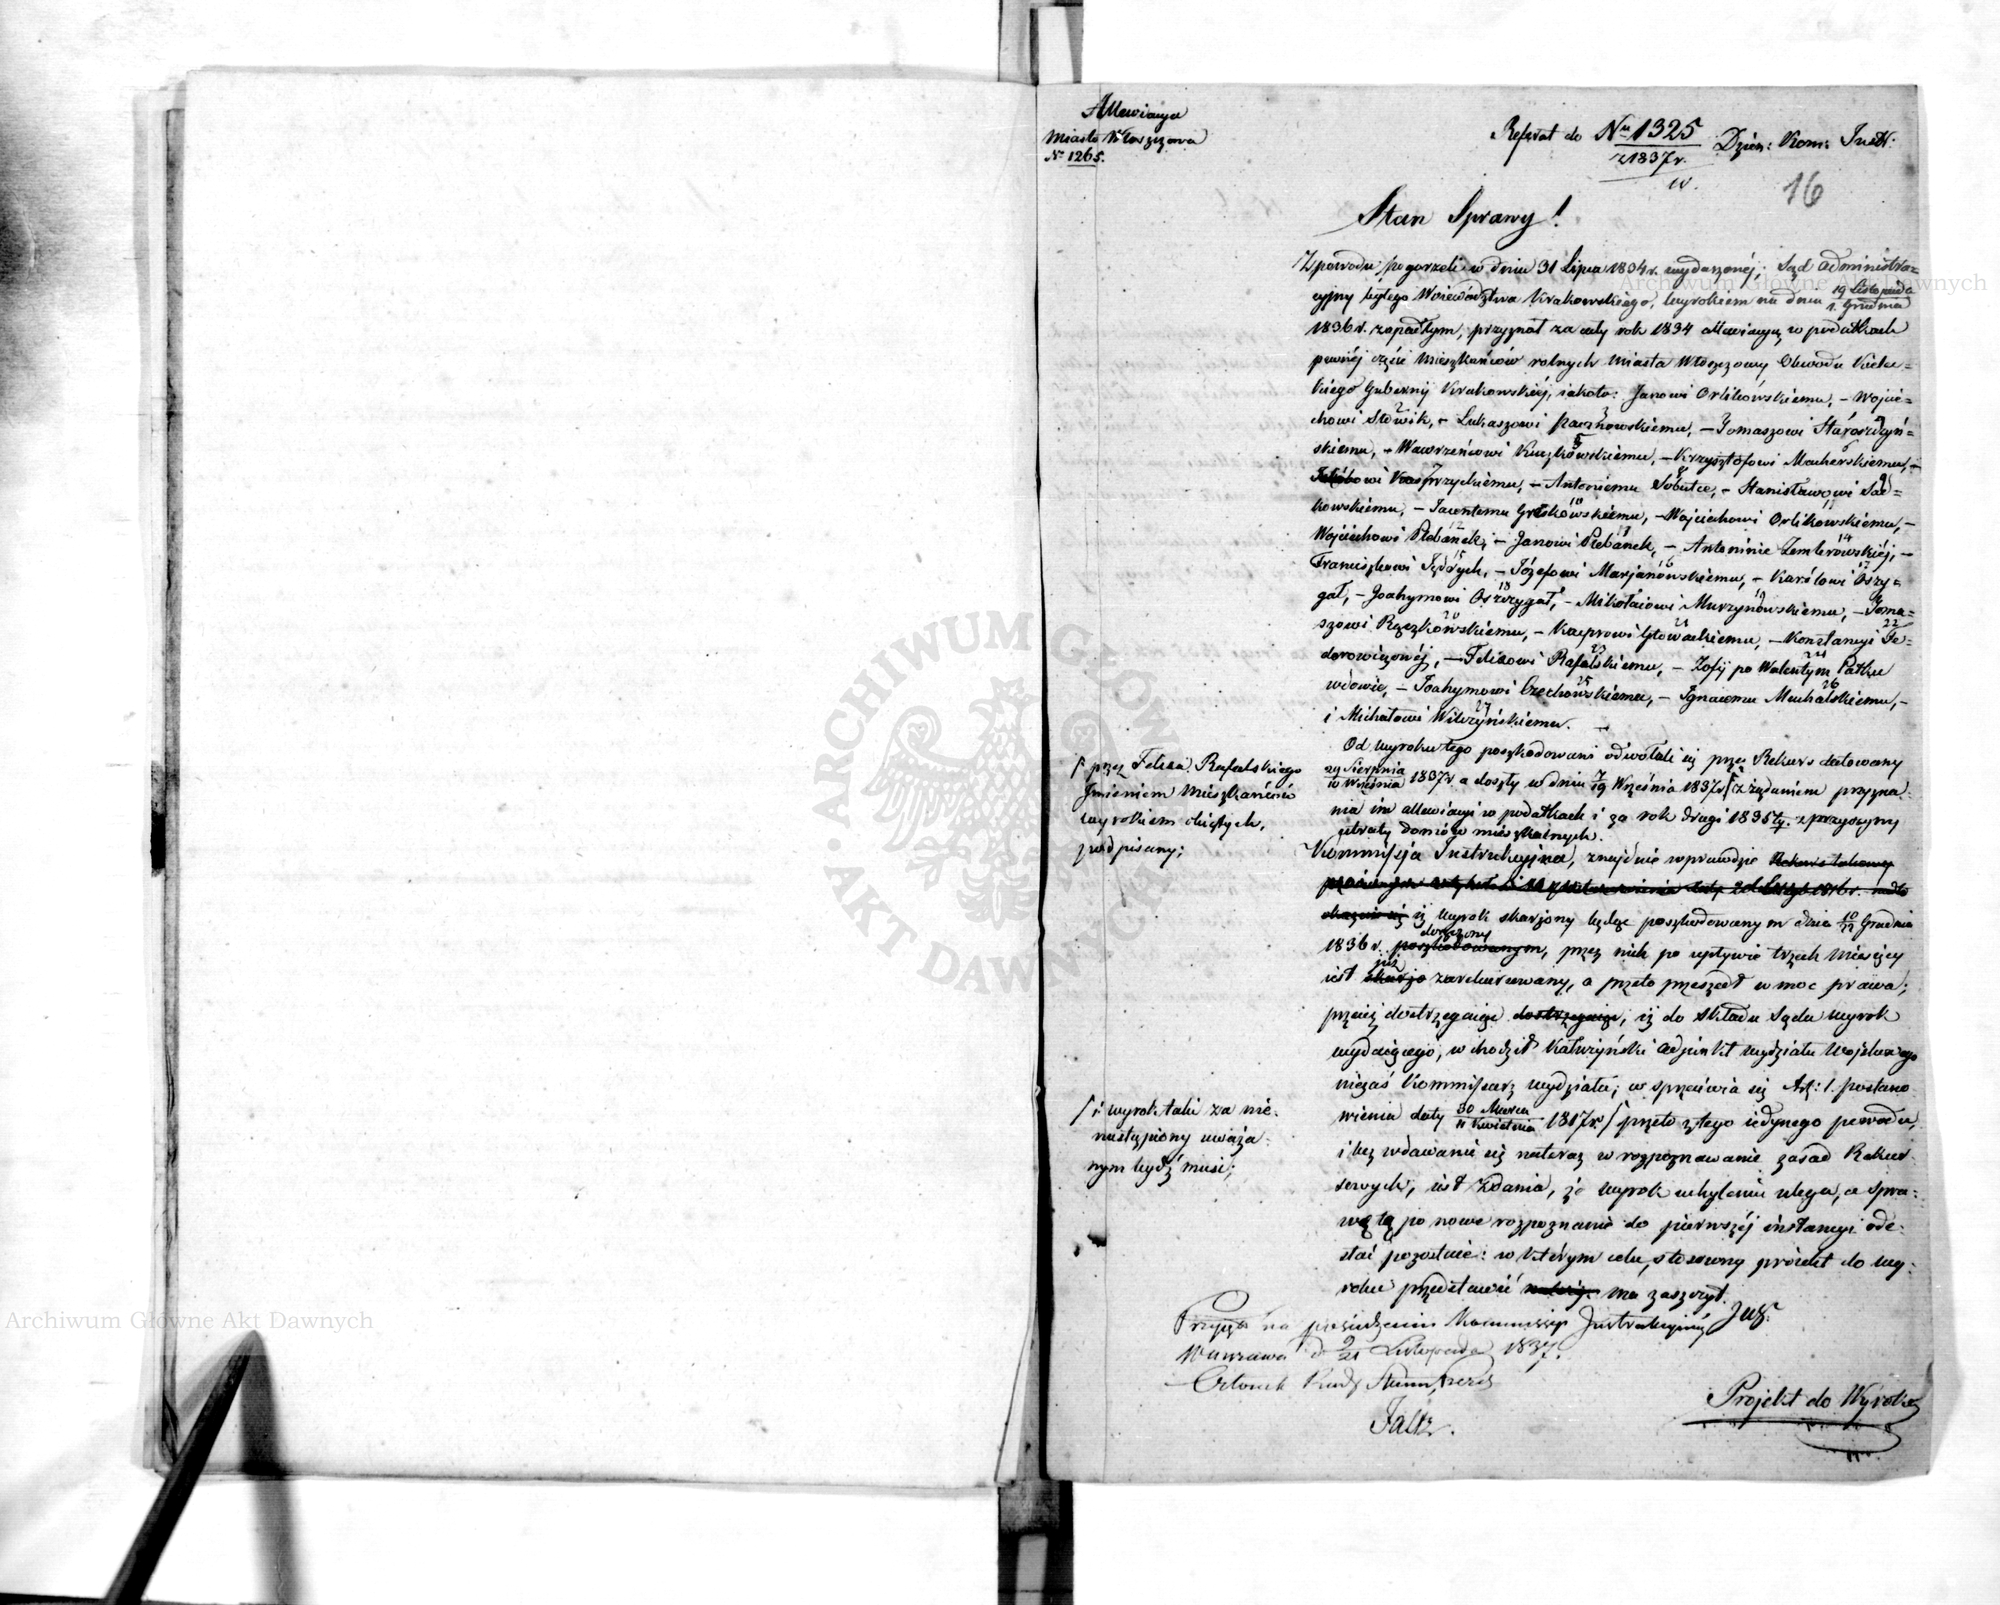 Allewiacya
Miasto Włoszczowa
N. 1265.
Referat do Nru 1325 Dzien: Kom: Instr:
z 1837 r.
16
Stan Sprawy!
Z powodu pogorzeli w dniu 31 Lipca 1834 r. wydarzonéj, Sąd Administra=
cyjny byłego Województwa Krakowskiego, wyrokiem na dniu 19 Listopada / 1. Grudnia
1836 r. zapadłym, przyznał za cały rok 1834 allewiacyą w podatkach
pewnéj części Mieszkańców rolnych Miasta Włoszczowy Obwodu Kielec=
kiego Gubernij Krakowskiéj, iakoto: Janowi Orlikowskiemu, – Wojcie=
chowi Słowik, 2 – Łukaszowi Paczkowskiemu, 3 – Tomaszowi Staroszczyń= 4
skiemu, – Wawrzeńcowi Kuczkowskiemu, 5 – Krzysztofowi Macherskiemu, 6 –
Jakóbowi Kasprzyckiemu, – Antoniemu Sobutce, 8 – Stanisławowi Sac= 9
kowskiemu, – Jacentemu Greskowskiemu, 10 – Wojciechowi Orlikowskiemu, 11 –
Woyciechowi Plebanek, 12 – Janowi Plebanek, 13 – Antoninie Zemlerowskiéj, 14 –
Franciszkowi Jędrych, 15 – Józefowi Marjanowskiemu, 16 – Karólowi Oszy= 17
gał, – Joahymowi Oszczygał, 18 – Mikołaiowi Murzynowskiemu, 19 – Toma=
szowi Rączkowskiemu, 20 – Kacprowi Głowackiemu, 21 – Konstancyi Fe= 22
dorowiczowéj, – Felixowi Rafalskiemu, 23 – Zofij po Walentym Patku 24
wdowie, – Joahymowi Czechowskiemu, 25 – Ignacemu Machalskiemu, 26 –
i Michałowi Wilczyńskiemu. 27 –
Od wyroku tego poszkodowani odwołali się przez Rekurs datowany
29 Sierpnia / 10 Września 1837 r. a doszły w dniu 7/19 Września 1837 r. / z żądaniem przyzna
nia im allewiacyi w podatkach i za rok drugi 1835ty. z przyczyny
utraty domów mieszkalnych.
/ przez Felixa Rafalskiego
Imieniem Mieszkańców
wyrokiem obiętych,
podpisany;
Kommissja Instrukcyjna, znajduie wprawdzie Rekurs takowy
iż wyrok skarżony będąc poszkodowanym dnia 10/22 Grudnia
1836 r. doręczony poszkodowanym, przez nich po upływie trzech Miesięcy
iest już skarżo zarekurowany, a przeto przeszedł w moc prawa;
przecież dostrzegaiąc dostrzegaiąc, iż do składu Sądu wyrok
wydaiącego, wchodził Kałużyński Adjunkt wydziału Wojskowego
nie zaś Kommissarz wydziału; co sprzeciwia się Art: 1. postano
wienia daty 30 Marca / 11 Kwietnia 1817 r. / przeto z tego iedynego powodu,
i bez wdawania się nateraz w rozpoznawanie zasad Rekur
sowych, iest zdania, że wyrok uchyleniu ulega, a spra=
wę tę po nowe rozpoznanie do pierwszéj instancyi ode=
słać pozostaie: w którym celu, stosowny proiekt do wy=
roku przedstawić ma zaszczyt.
/ i wyrok taki za nie=
nastąpiony uważa=
nym bydź musi;
Przyjęto na posiedzeniu Kommissyi Instrukcyjnéj
Warszawa d. 9/21 Listopada 1837.
Członek Rady Stanu, Prezes
Faltz.
Projekt do Wyroku
ARCHIWUM GŁÓWNE AKT DAWNYCH
Archiwum Główne Akt Dawnych
Archiwum Główne Akt Dawnych